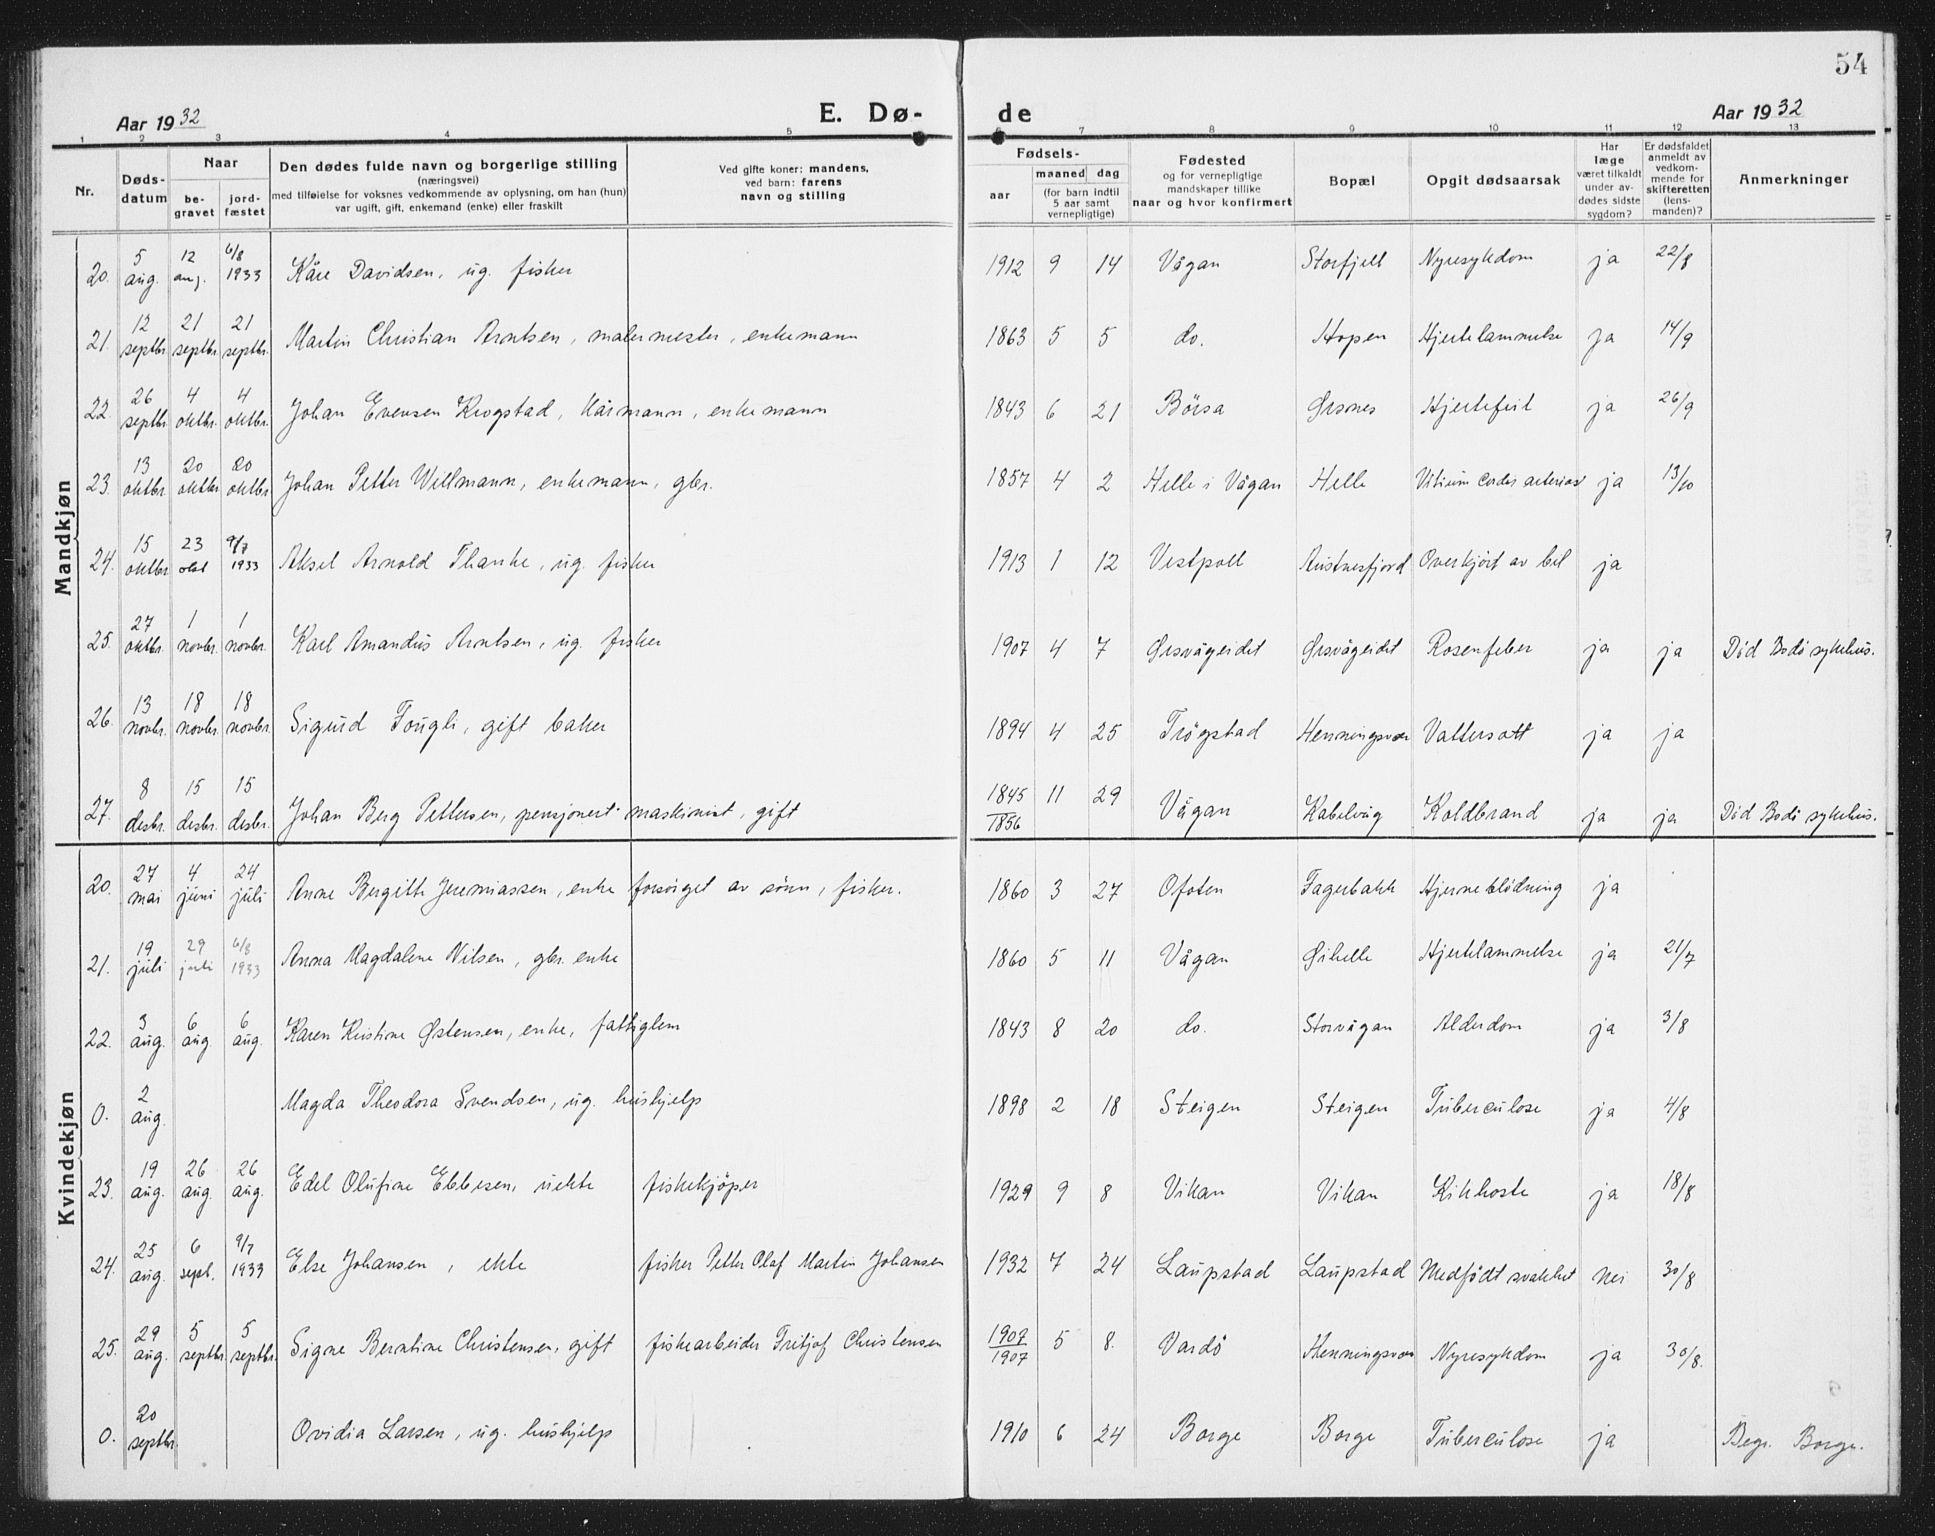 54
Aar 1932 E. Dø- de Aar 1932
1 2 3 4 5 6 7 8 9 10 11 12 13
Nr. Døds-datum Naar be-gravet jord-fæstet Den dødes fulde navn og borgerlige stilling (næringsvei) med tilføielse for voksnes vedkommende av oplysning, om han (hun) var ugift, gift, enkemand (enke) eller fraskilt Ved gifte koner: mandens, ved barn: farens navn og stilling Fødsels- aar maaned dag (for barn indtil 5 aar samt vernepligtige) Fødested og for vernepligtige mandskaper tillike naar og hvor konfirmert Bopæl Opgit dødsaarsak Har læge været tilkaldt under av-dødes sidste sygdom? Er dødsfaldet anmeldt av vedkom-mende for skifteretten (lens-manden)? Anmerkninger
Mandkjøn
20. 5 aug. 12 aug. 6/8 1933 Kåre Davidsen, ug. fisker 1912 9 14 Vågan Storfjell Nyresykdom ja 22/8
21. 12 septbr. 21 septbr. 21 septbr. Martin Christian Arntsen, malermester, enkemann 1863 5 5 do. Hopen Hjertelammelse ja 14/9
22. 26 septbr. 4 oktbr. 4 oktbr. Johan Evensen Krogstad, kårmann, enkemann 1843 6 21 Börsa Ørsnes Hjertefeil ja 26/9
23. 13 oktbr. 20 oktbr. 20 oktbr. Johan Petter Willmann, enkemann, gbr. 1857 4 2 Helle i Vågan Helle Vitium cordis ja 13/10
24. 15 oktbr. 23 okt 9/7 1933 Aksel Arnold Thanke, ug. fisker 1913 1 12 Vestpoll Austnesfjord Overkjört av bil ja
25. 27 oktbr. 1 novbr. 1 novbr. Karl Amandus Arntsen, ug. fisker 1907 4 7 Ørsvågeidet Ørsvågeidet Rosenfeber ja ja Död Bodö sykehus.
26. 13 novbr. 18 novbr. 18 novbr. Sigurd Fougli, gift baker 1894 4 25 Trögstad Henningsvær Vattersott ja ja
27. 8 desbr. 15 desbr. 15 desbr. Johan Berg Pettersen, pensjonert maskinist, gift 1845/1856 11 29 Vågan Kabelvåg Koldbrand ja ja Död Bodö sykehus.
Kvindekjøn
20. 27 mai 4 juni 24 juli Anne Bergitte Jeremiassen, enke forsörget av sönn, fisker. 1860 3 27 Ofoten Fagerbakk Hjerneblödning ja
21. 19 juli 29 juli 6/8 1933 Anna Magdalene Nilsen, gbr. enke 1860 5 11 Vågan Øihelle Hjertelammelse ja 21/7
22. 3 aug. 6 aug. 6 aug. Karen Kristine Østensen, enke, fattiglem 1843 8 20 do. Storvågan Alderdom ja 3/8
0. 2 aug. Magda Theodora Svendsen, ug. hushjelp 1898 2 18 Steigen Steigen Tuberculose ja 4/8
23. 19 aug. 26 aug. 26 aug. Edel Olufine Ebbesen, uekte fiskekjöper 1929 9 8 Vikan Vikan Kikhoste ja 18/8
24. 25 aug. 6 sept. 9/7 1933 Else Johansen, ekte fisker Petter Olaf Martin Johansen 1932 7 24 Laupstad Laupstad Medfödt svakhet nei 30/8
25. 29 aug. 5 septbr. 5 septbr. Signe Berntine Christensen, gift fiskearbeider Fritjof Christensen 1907/1907 5 8. Vardö Henningsvær Nyresykdom ja 30/8.
0. 20 septbr. Ovidia Larsen, ug. hushjelp 1910 6 24 Borge Borge Tuberculose ja Begr. Borge.